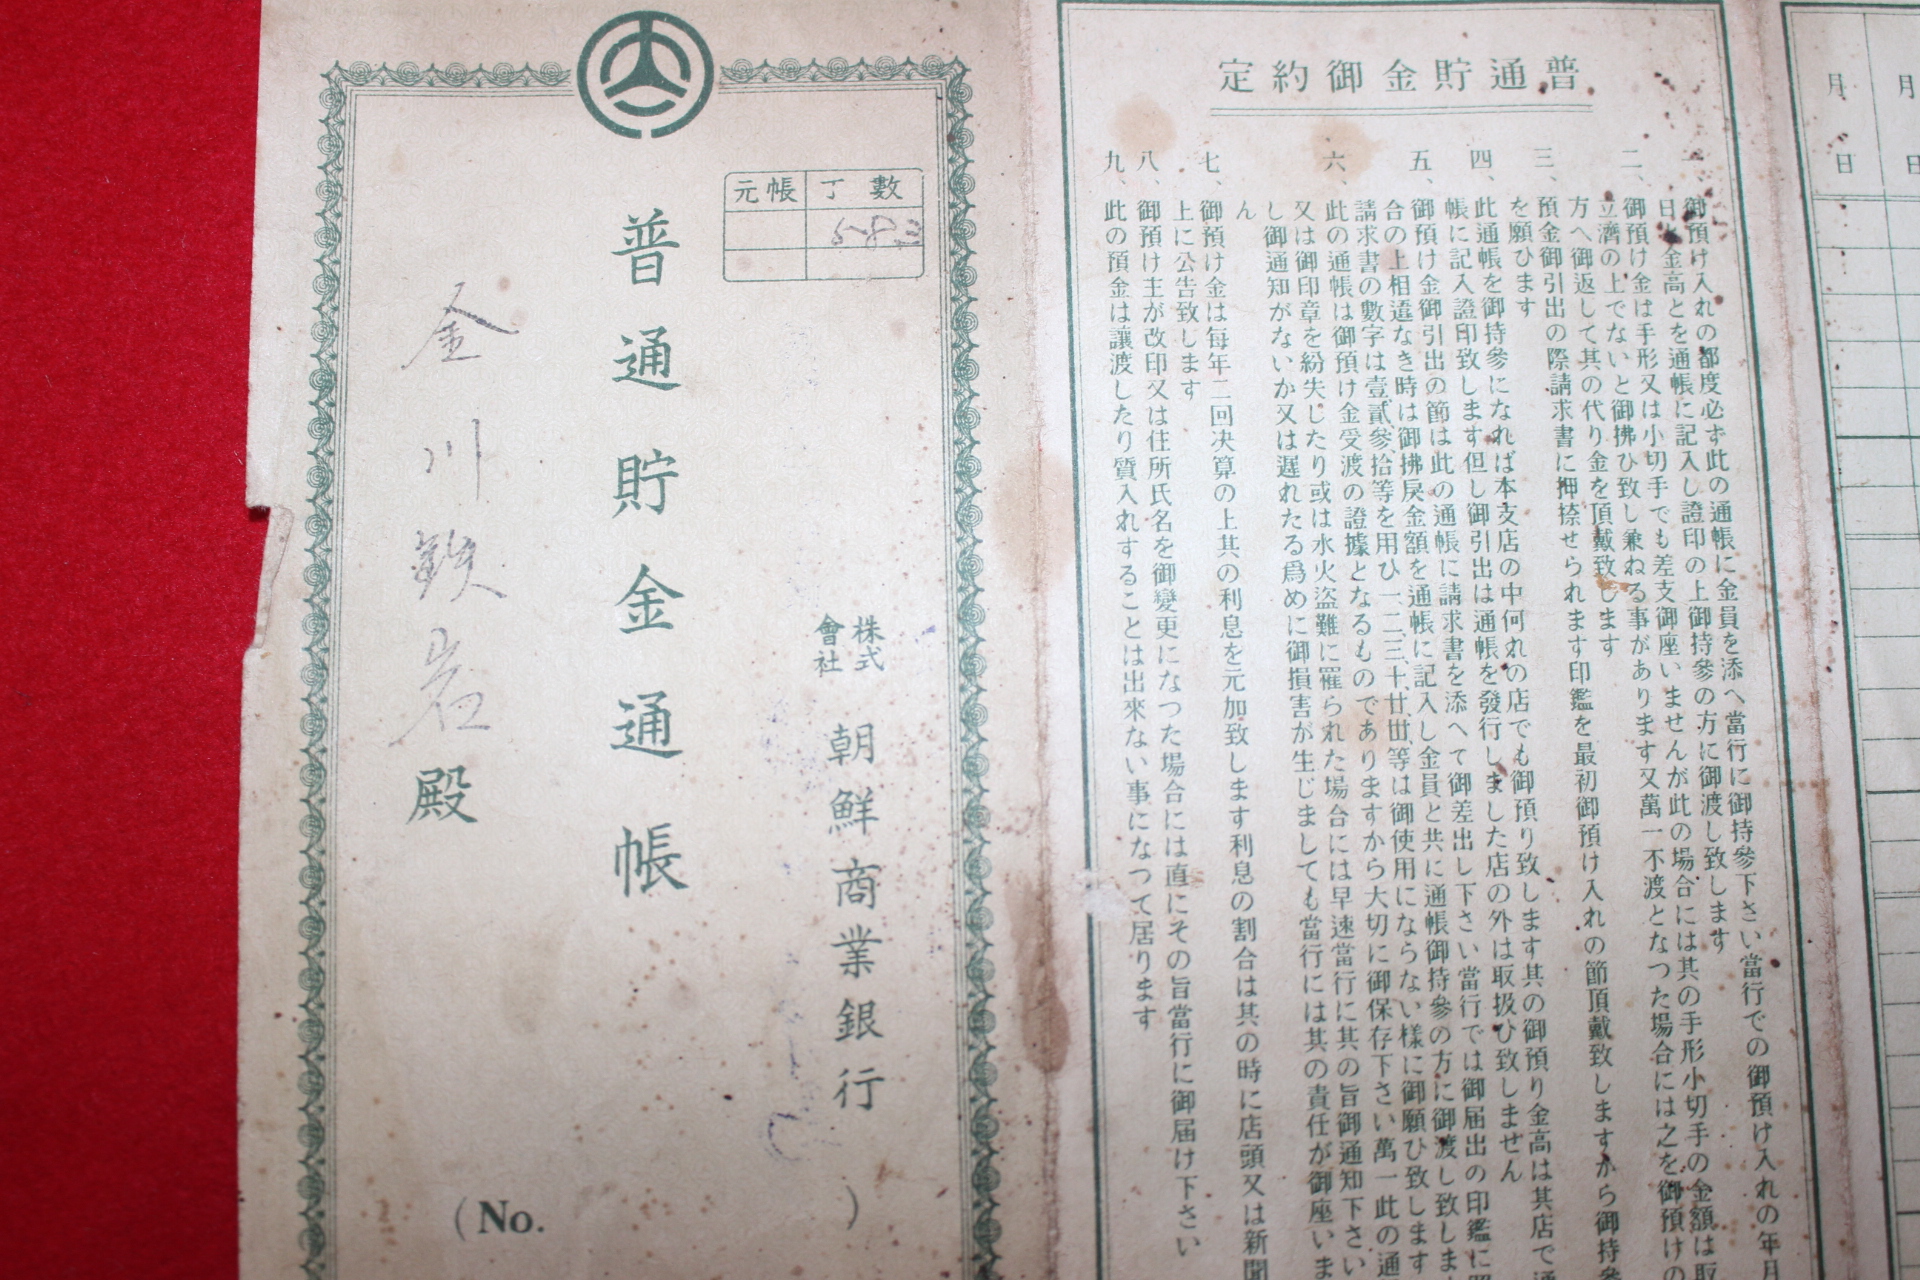 元帳 丁數
583
株式會社 朝鮮商業銀行
普通貯金通帳
金川鉄岩殿
(No. )
普通貯金御約定
一、御預け入れの都度必ず此の通帳に金員を添へ當行に御持參下さい當行での御預け入れの年月
日と金高とを通帳に記入し證印の上御持參の方に御渡し致します
二、御預け金は手形又は小切手でも差支御座いませんが此の場合には其の手形小切手の金額は取
立濟の上でないと御拂ひ致し兼ねる事があります又萬一不渡となつた場合には之を御預けの
方へ御返して其の代り金を頂戴致します
三、預金御引出の際請求書に押捺せられます印鑑を最初御預け入れの節頂戴致しますから御持參
を願ひます
四、此通帳を御持參になれば本支店の中何れの店でも御預り致します其の御預り金高は其店で通
帳に記入證印致します但し御引出は通帳を發行しました店の外は取扱ひ致しません
五、御預け金御引出の節は此の通帳に請求書を添へて御差出し下さい當行では御届出の印鑑に照
合の上相違なき時は御拂戻金額を通帳に記入し金員と共に通帳御持參の方に御渡し致します
請求書の數字は壹貳參拾等を用ひ一二三十廿丗等は御使用にならない樣に御願ひ致します
六、此の通帳は御預け金受渡の證據となるものでありますから大切に御保存下さい萬一此の通
又は御印章を紛失したり或は水火盜難に罹られた場合には早速當行に其の旨御通知下さい
し御通知がないか又は遲れたる爲めに御損害が生じましても當行には其の責任が御座いま
ん
七、御預け金は每年二回決算の上其の利息を元加致します利息の割合は其の時に店頭又は新聞
上に公告致します
八、御預け主が改印又は住所氏名を御變更になつた場合には直にその旨當行に御届け下さい
九、此の預金は讓渡したり質入れすることは出來ない事になつて居ります
月 日
月 日